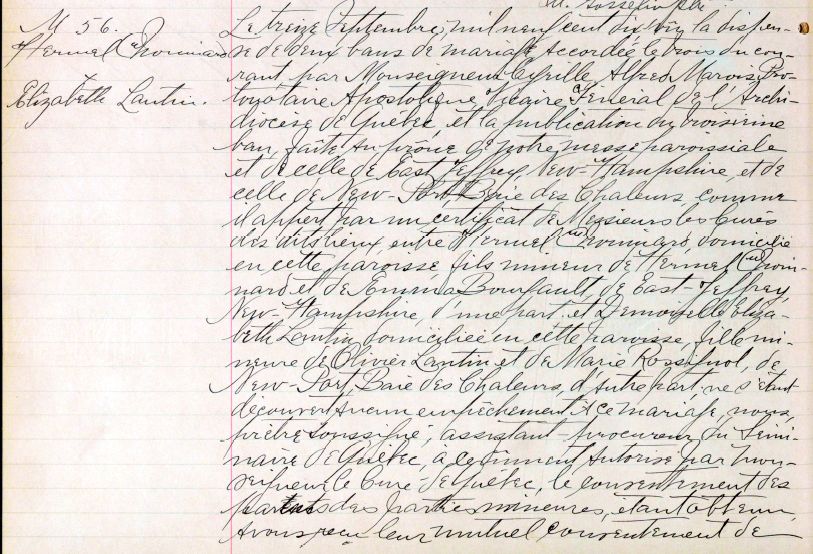 M 56.
Hermel Chouinard
Elizabeth Lantin.
Le treize Septembre, mil neuf cent dix la dispen-
se de deux bans de mariage accordée le trois du cou-
rant, par Monseigneur Cyrille Alfred Marois, Pro-
tonotaire Apostolique, Vicaire Général de l'Archi-
diocèse de Québec, et la publication du troisième
ban, faite au prône de notre messe paroissiale
et de celle de East Jeffrey, New-Hampshire, et de
celle de New-Port, Baie des Chaleurs, comme
d'appert par un certificat de Messieurs les Curés
des dits lieux, entre Hermel Chouinard, domicilié
en cette paroisse, fils mineur de Hermel Choui-
nard et de Emma Bourgault, de East-Jeffrey,
New-Hampshire, d'une part: et Demoiselle Eliza-
beth Lantin, domiciliée en cette paroisse, fille mi-
neure de Olivier Lantin et de Marie Rossignol, de
New-Port, Baie des Chaleurs, d'autre part; ne s'étant
découvert aucun empêchement à ce mariage, nous,
prêtre soussigné, assistant-procureur du Sémi-
naire de Québec, autorisé par Mon-
seigneur le Curé de Québec, le consentement des
parents des parties mineures, étant obtenu,
avons reçu leur mutuel consentement de